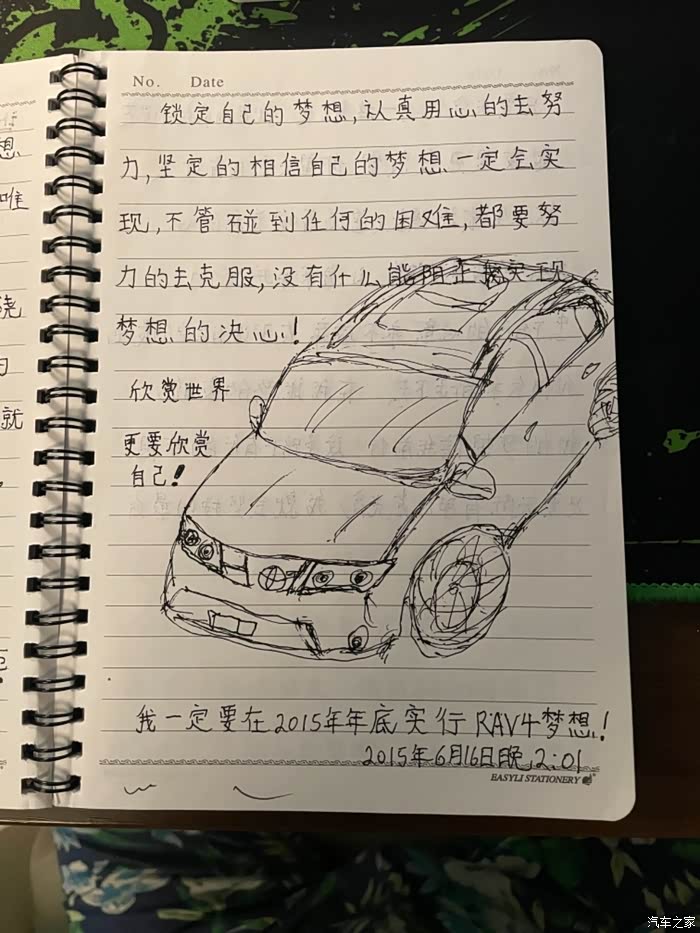 No. Date
锁定自己的梦想,认真用心的去努
力,坚定的相信自己的梦想一定会实
现,不管碰到任何的困难,都要努
力的去克服,没有什么能阻止我实现
梦想的决心!
欣赏世界
更要欣赏
自己!
我一定要在2015年年底实行RAV4梦想!
2015年6月16日晚12:01
EASYLI STATIONERY
想
唯
就
汽车之家